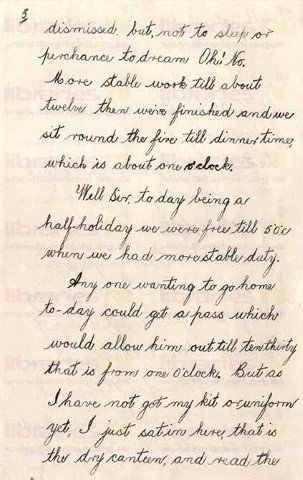 3
dismissed, but, not to sleep or
perchance to dream Oh! No.
More stable work till about
twelve then we're finished and we
sit round the fire till dinner time,
which is about one o'clock.
Well Sir, to day being a
half-holiday we were free till 5 o'c
when we had more stable duty.
Any one wanting to go home
to-day could get a pass which
would allow him out till ten thirty
that is from one o'clock. But as
I have not got my kit or uniform
yet, I just sat in here, that is
the dry canteen, and read the